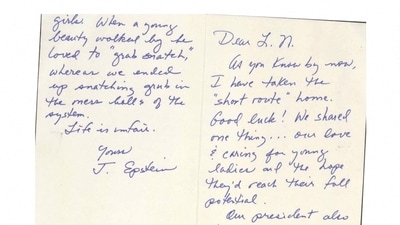 Dear L. N.
As you know by now,
I have taken the
"short route" home.
Good luck! We shared
one thing... our love
& caring for young
ladies and the hope
they'd reach their full
potential.
Our president also
girls. When a young
beauty walked by he
loved to "grab snatch,"
whereas we ended
up snatching grub in
the mess halls of the
system.
Life is unfair.
Yours
J. Epstein